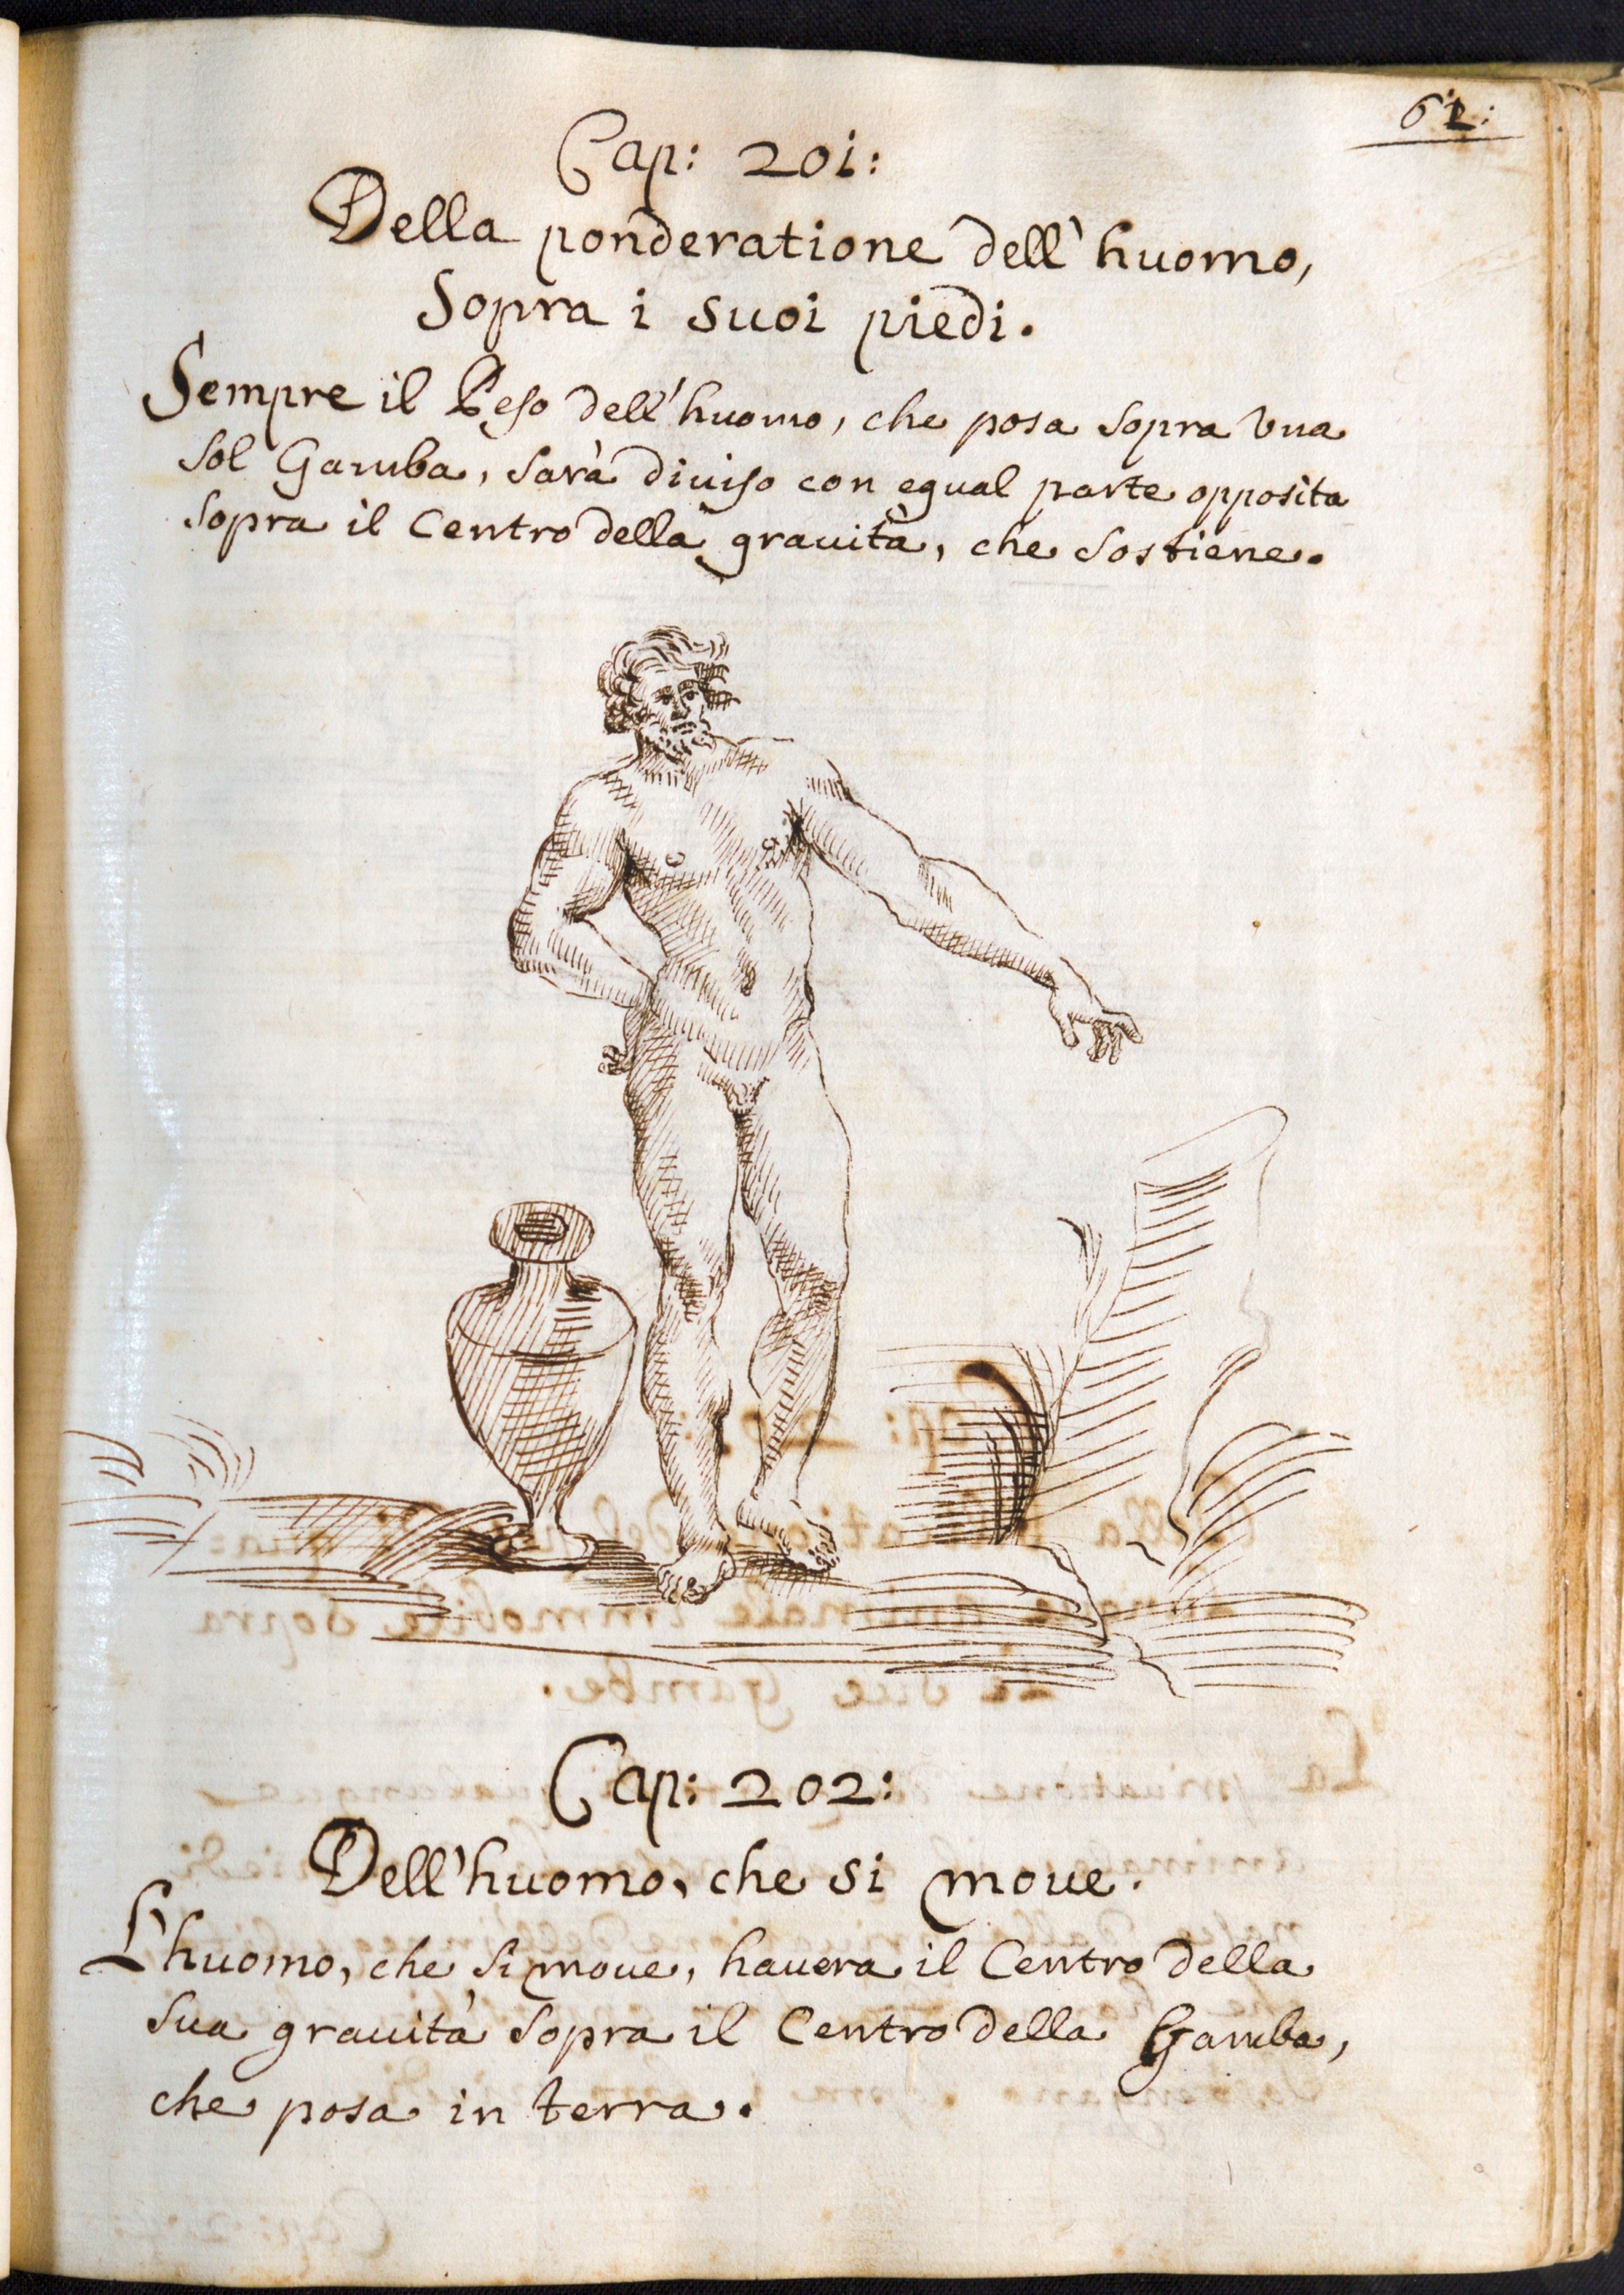 62:
Cap: 201:
Della ponderatione dell'huomo,
Sopra i suoi piedi.
Sempre il Peso dell'huomo, che posa sopra vna
sol Gamba, sarà diuiso con egual parte opposita
sopra il Centro della grauità, che sostiene.
Cap: 202:
Dell'huomo, che si moue.
L'huomo, che si moue, hauera il Centro della
sua grauità sopra il Centro della Gamba,
che posa in terra.